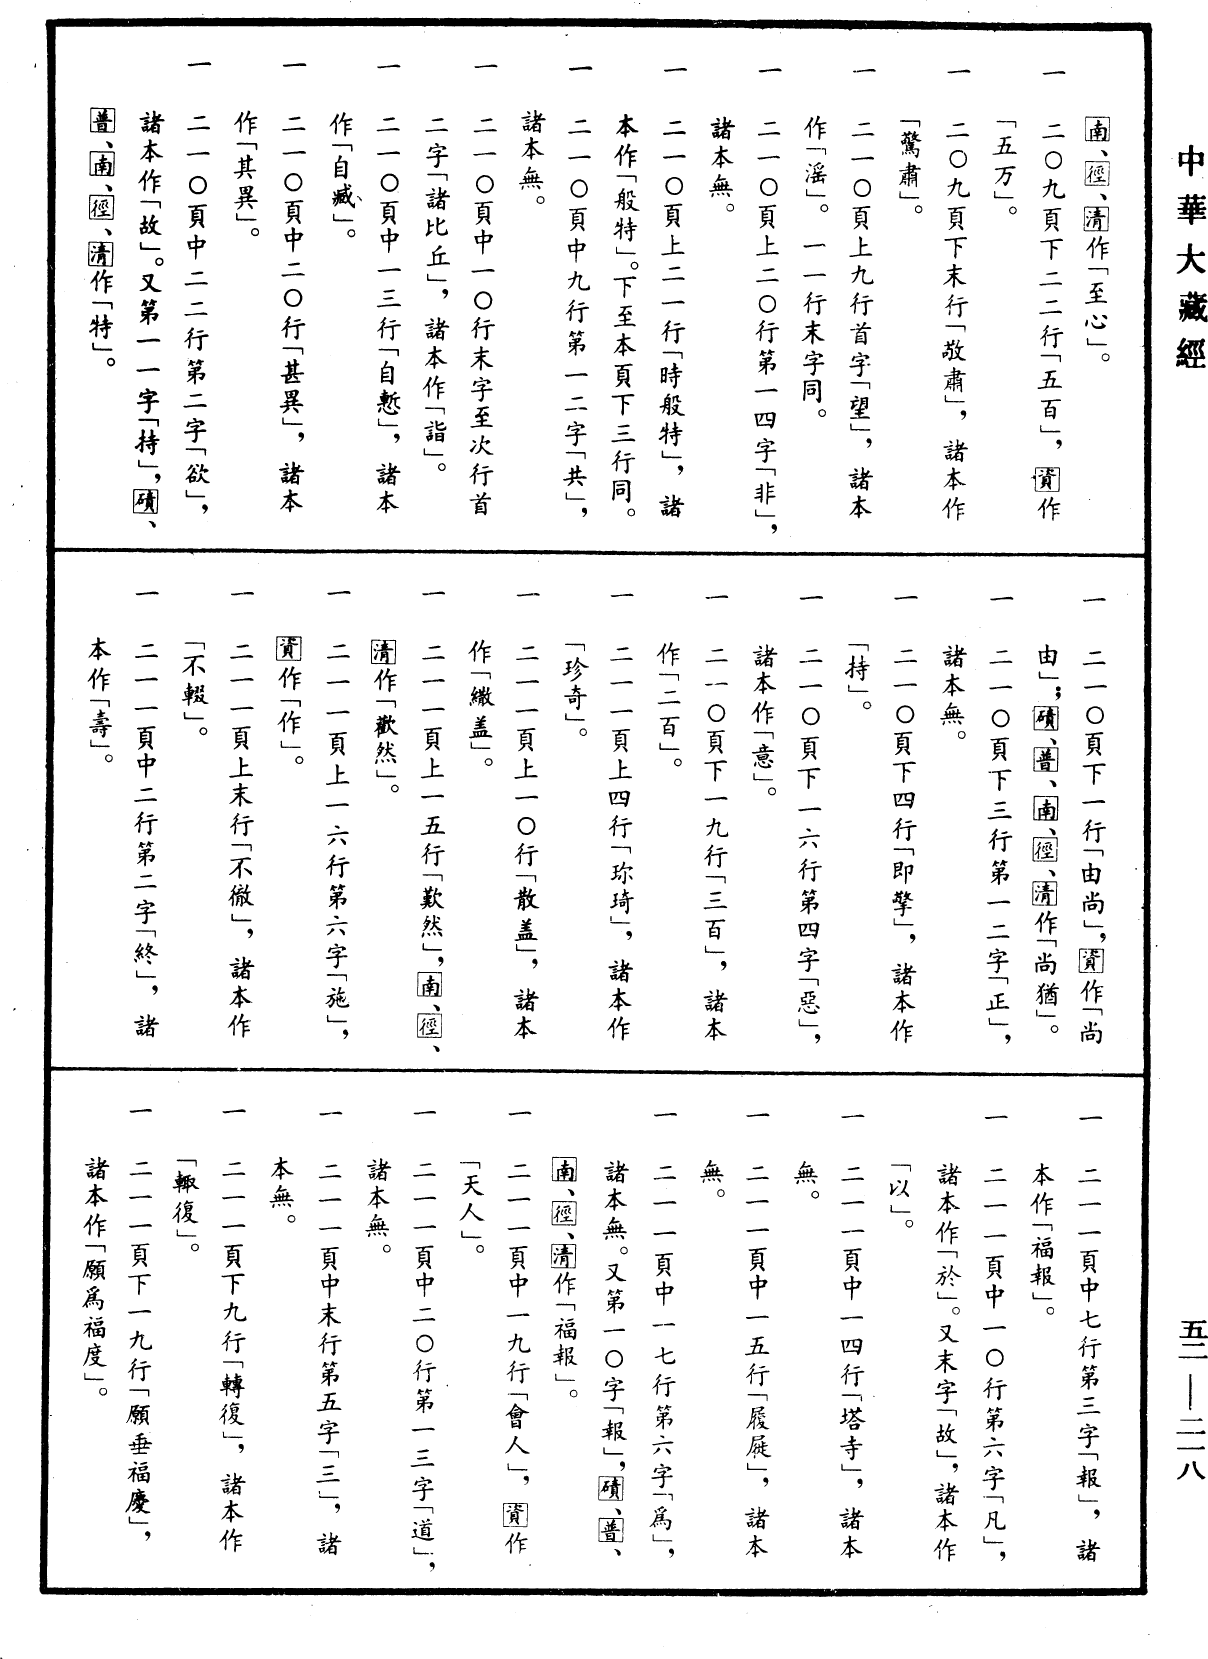 中華大藏經
南、徑、清作「至心」。
一 二〇九頁下二二行「五百」，資作
「五万」。
一 二〇九頁下末行「敬肅」，諸本作
「驚肅」。
一 二一〇頁上九行首字「望」，諸本
作「滛」。一一行末字同。
一 二一〇頁上二〇行第一四字「非」，
諸本無。
一 二一〇頁上二一行「時般特」，諸
本作「般特」。下至本頁下三行同。
一 二一〇頁中九行第一二字「共」，
諸本無。
一 二一〇頁中一〇行末字至次行首
二字「諸比丘」，諸本作「詣」。
一 二一〇頁中一三行「自慙」，諸本
作「自臧」。
一 二一〇頁中二〇行「甚異」，諸本
作「其異」。
一 二一〇頁中二二行第二字「欲」，
諸本作「故」。又第一一字「持」，磧、
普、南、徑、清作「特」。
一 二一〇頁下一行「由尚」，資作「尚
由」；磧、普、南、徑、清作「尚猶」。
一 二一〇頁下三行第一二字「正」，
諸本無。
一 二一〇頁下四行「即擎」，諸本作
「持」。
一 二一〇頁下一六行第四字「惡」，
諸本作「意」。
一 二一〇頁下一九行「三百」，諸本
作「二百」。
一 二一一頁上四行「珎琦」，諸本作
「珍奇」。
一 二一一頁上一〇行「散盖」，諸本
作「繖盖」。
一 二一一頁上一五行「歎然」，南、徑、
清作「歡然」。
一 二一一頁上一六行第六字「施」，
資作「作」。
一 二一一頁上末行「不徹」，諸本作
「不輟」。
一 二一一頁中二行第二字「終」，諸
本作「壽」。
一 二一一頁中七行第三字「報」，諸
本作「福報」。
一 二一一頁中一〇行第六字「凡」，
諸本作「於」。又末字「故」，諸本作
「以」。
一 二一一頁中一四行「塔寺」，諸本
無。
一 二一一頁中一五行「履屣」，諸本
無。
一 二一一頁中一七行第六字「爲」，
諸本無。又第一〇字「報」，磧、普、
南、徑、清作「福報」。
一 二一一頁中一九行「會人」，資作
「天人」。
一 二一一頁中二〇行第一三字「道」，
諸本無。
一 二一一頁中末行第五字「三」，諸
本無。
一 二一一頁下九行「轉復」，諸本作
「輙復」。
一 二一一頁下一九行「願垂福慶」，
諸本作「願爲福度」。
五二—二一八